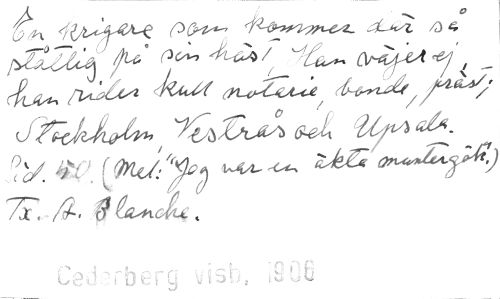 En krigare som kommer där så
ståtlig på sin häst, Han väjer ej,
han rider kull notarie, bonde, präst;
Stockholm, Vestrås och Upsala.
Sid. 50. (Mel: "Jag var en äkta muntergök".)
Tx. A. Blanche.
Cederberg visb, 1906